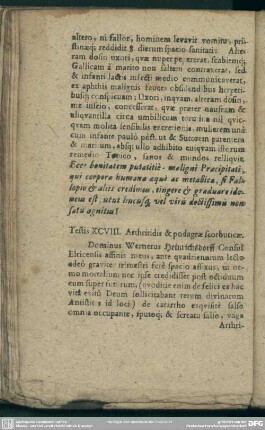 altero, ni fallor, hominem levavit vomitu, pri-
stinæq; reddidit 8. dierum spatio sanitati: Alte-
ram dosin uxori, quæ nuper pepererat, scabiemq;
Gallicam à marito non saltem contraxerat, sed
& infanti lactis infecti medio communicaverat,
ex aphthis malignis fauces obsidendibus herpeti-
busq; conspicuam: Uxori, inquam, alteram dosin,
me inscio, concesserat, quæ præter nauseam &
aliquantillā circa umbilicum tormina nil quic-
quam molita sensibilis excretionis, mulierem unà
cum infante paulò post ut & Sutorem patentem
& maritum, absq; ullo adhibito cuiquam illorum
remedio Topico, sanos & mundos relliquit.
Ecce bonitatem putatitiè-maligni Præcipitati,
qui corpora humana æquè ac metallica, si Fal-
lopio & aliis credimus, tingere & graduare ido-
neus est, utut hucusq; vel viris doctissimis non
satis agnitus!
Testis XCVIII. Arthritidis & podagræ scorbuticæ.
Dominus Wernerus Consul
Elricensis affinis meus, ante quadriennium lecto
adeò graviter trimestri ferè spatio affixus, ut ne-
mo mortalium nec ipse crediderit post octiduum
eum superfuturum, (evoditic enim de felici ex hac
vita exitu Deum sollicitabant rerum divinarum
Antistites id loci) de catarrho exquisitè salso
omnia occupante, sputoq; & screatu salso, vaga
Arthri-